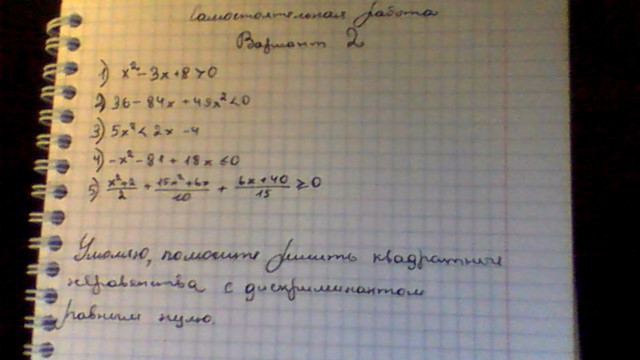 Самостоятельная работа
Вариант 2
1) x² - 3x + 8 > 0
2) 36 - 84x + 49x² < 0
3) 5x² < 2x - 4
4) -x² - 81 + 18x ≤ 0
5) (x²+2)/2 + (15x²+6x)/10 + (6x+40)/15 ≥ 0
Умоляю, помогите решить квадратные
неравенства с дискриминантом
равным нулю.